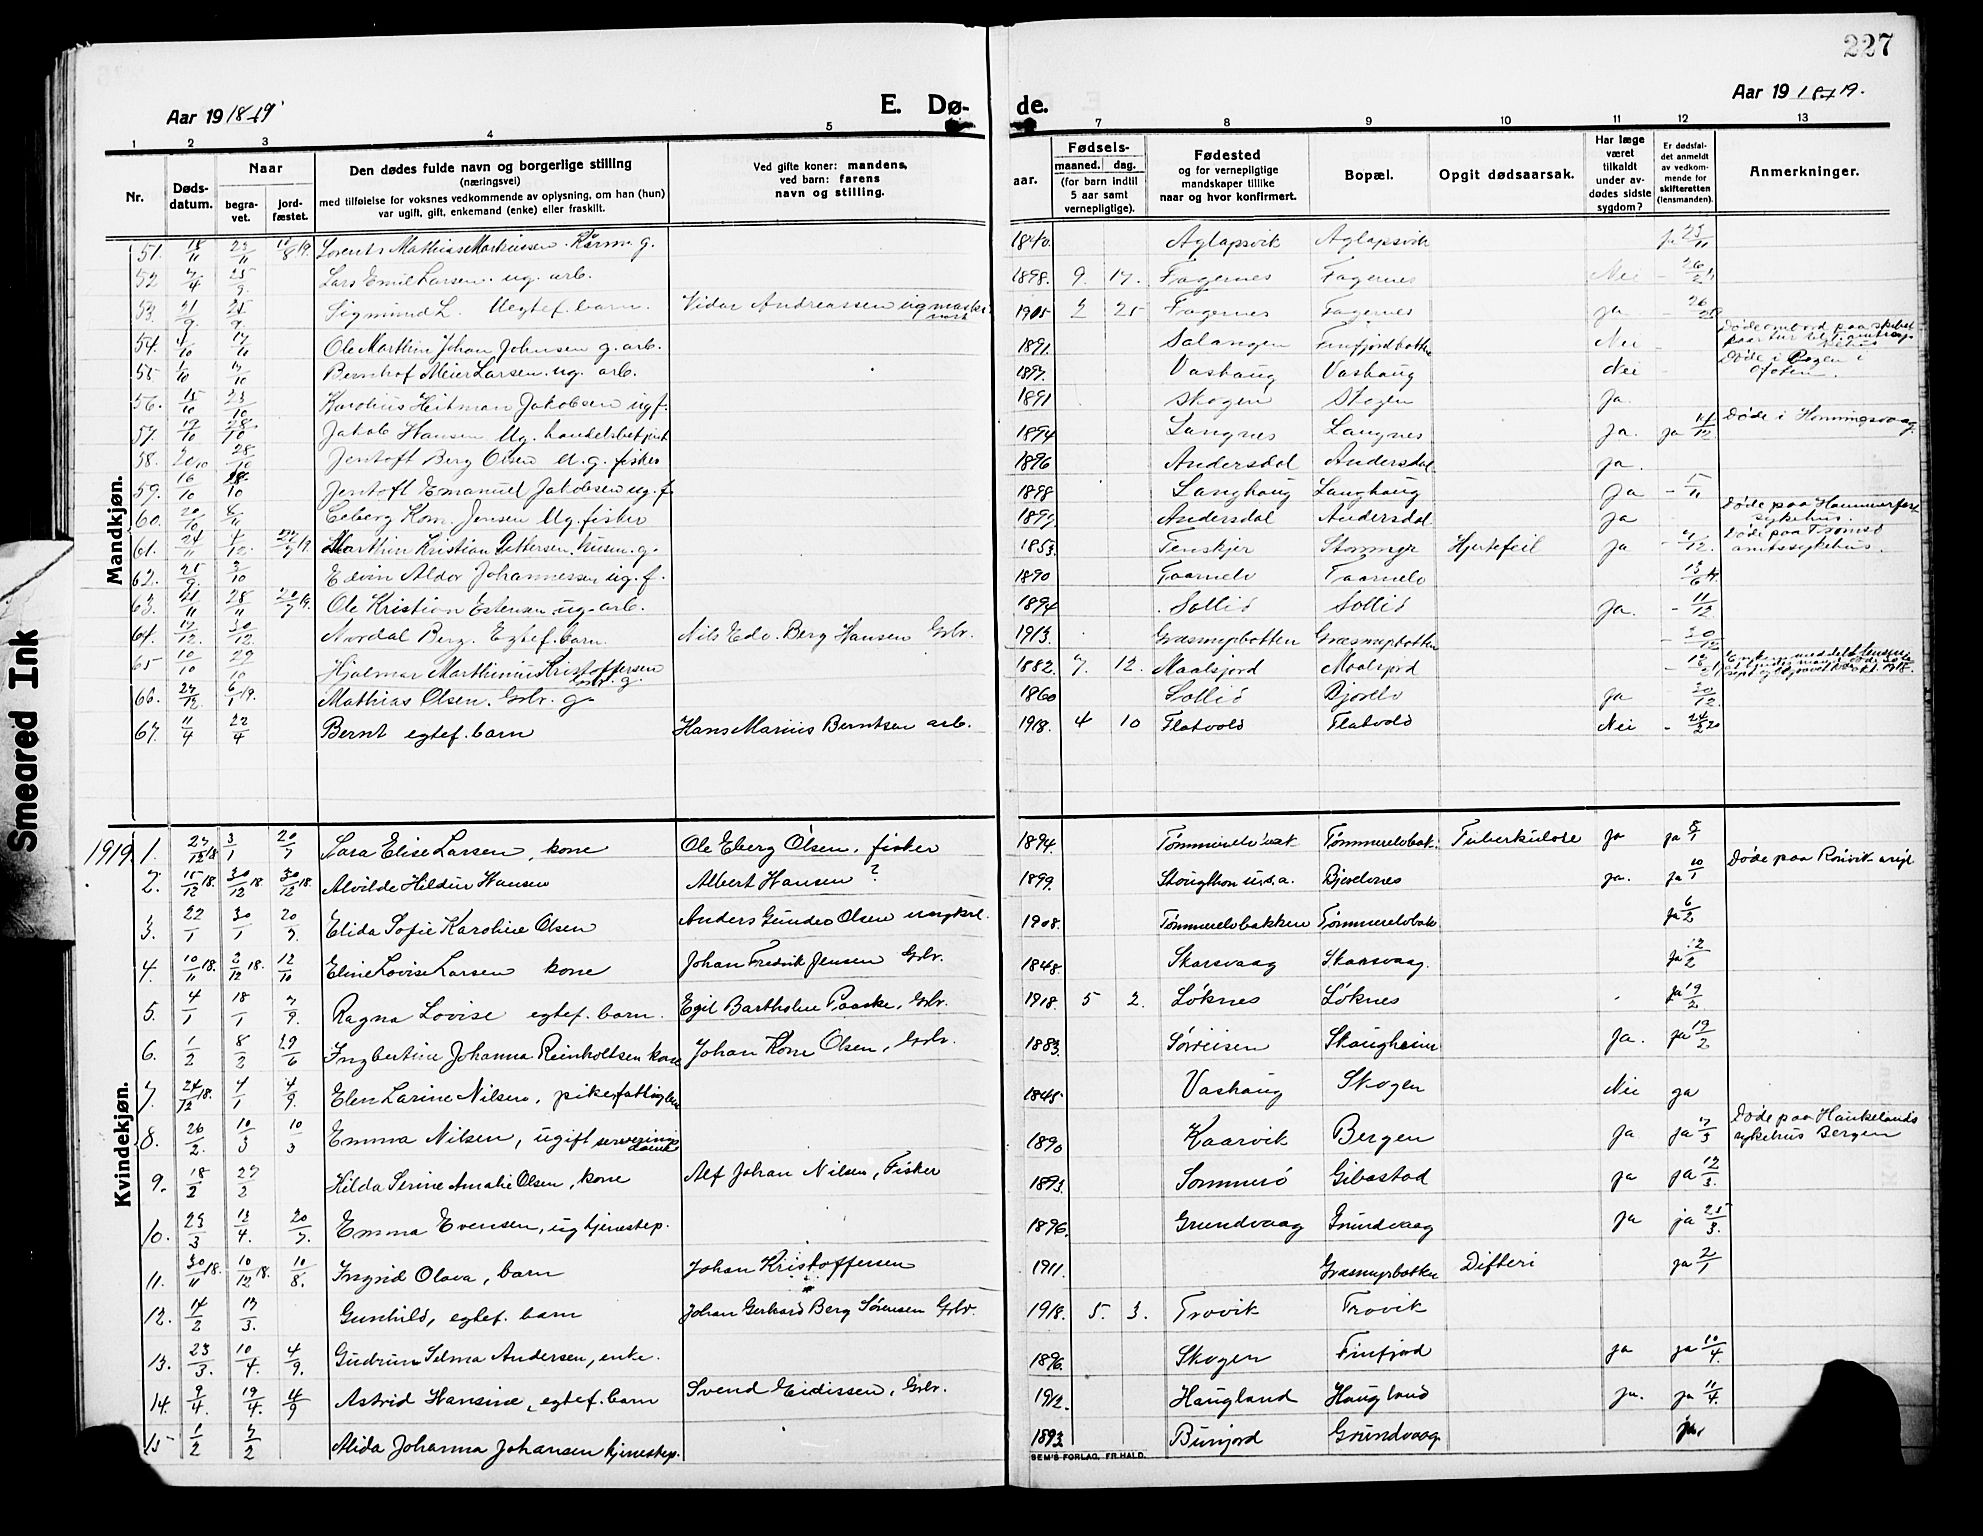 227
Aar 1918-19
E. Dø-
de.
Aar 1918-19.
1 2 3 4 5 7 8 9 10 11 12 13
Nr.
Døds-
datum.
Naar
begra-
vet.
jord-
fæstet.
Den dødes fulde navn og borgerlige stilling
(næringsvei)
med tilføielse for voksnes vedkommende av oplysning, om han (hun)
var ugift, gift, enkemand (enke) eller fraskilt.
Ved gifte koner: mandens,
ved barn: farens
navn og stilling.
Fødsels-
aar. maaned. dag.
(for barn indtil
5 aar samt
vernepligtige).
Fødested
og for vernepligtige
mandskaper tillike
naar og hvor konfirmert.
Bopæl.
Opgit dødsaarsak.
Har læge
været
tilkaldt
under av-
dødes sidste
sygdom?
Er dødsfal-
det anmeldt
av vedkom-
mende for
skifteretten
(lensmanden).
Anmerkninger.
Mandkjøn.
51. 18/11 23/11 Lorents Mathias Markussen g. 1840. Aglapsvik Aglapsvik ja 23/11
52 7/4 25/9 Lars Emil Larsen. ug. arb. 1898. 9. 17. Fagernes Fagernes Nei
53. 21/9. 25/9. Sigmund L. Uegtef. barn. Vidar Andreassen ug 1905 2 25 Fagernes Fagernes ja
54. Ole Marthin Johan Johnsen g. arb. 1891. Salangen Finfjordbotten Nei Døde ombord paa
55 Bernhof Meier Larsen. ug. arb. 1897. Vashaug Vashaug Nei Døde i Bogen i Ofoten.
56. 15/10 23/10 Karolius Heitman Jakobsen ug f. 1891 Skogen Skogen Ja.
57. 17/10 28/10 Jakob Hansen Ug. handelsbetjent 1894 Langnes Langnes Ja. ja 14/12 Døde i Honningsvaag.
58. 20/10 28/10 Jentoft Berg Olsen U. g. fisker 1896 Andersdal Andersdal ja.
59. 16/10 28/10 Jentoft Emanuel Jakobsen ug. f. 1898 Langhaug Langhaug Ja
60. 20/10 Eeberg Kon. Jensen Ug. fisker 1897 Andersdal Andersdal Ja Døde paa Hammerfest sykehus.
61. 24/11 4/12. Marthin Kristian Pettersen, husm. g. 1853. Tenskjer Hjertefeil Ja Døde paa Tromsø amtssykehus.
62. 25/9. 3/10 Edvin Aldor Johannessen ug. f. 1890 Taarnelv Taarnelv
63. 21/11 28/11 Ole Kristian Estensen ug. arb. 1894 Sollid Sollid Ja. 11/12
64. 17/12. 30/12. Nordal Berg. Egtef. barn Nils Edv. Berg Hansen Grbr. 1913. Græsmyrbotten Græsmyrbotten
65 10/10 29/10 Hjalmar Marthinus Kristoffersen g. 1882. 7. 12. Maalsjord Maalsjord
66. 27/12 6/1 19. Mathias Olsen. Grbr. g. 1860 Sollid Bjorelv ja 30/12.
67. 11/4 22/4 Bernt egtef. barn Hans Marius Berntsen arb. 1918. 4 10 Flatvold Flatvold Nei
1919.
Kvindekjøn.
1. 27/12 18 3/1 20/7 Sara Elise Larsen, kone Ole Eberg Olsen. fisker 1894. Tømmerelvbak Tømmerelvbak. Tuberkulose ja ja 8/1
2. 15/12 18. 30/12 18. 30/12 18. Alvilde Hildur Hansen Albert Hansen ? 1899. Stoughton U.S.A. Bjorelvnes ja. ja 10/1 Døde paa Rønvik asyl
3. 22/1 30/1 20/7. Elida Sofie Karoline Olsen Anders Gunder Olsen ungkarl. 1908. Tømmerelvbakken Tømmerelvbak ja 6/2
4. 10/11 18. 2/12 18. 12/10 Eline Lovise Larsen kone Johan Fredrik Jensen Grbr. 1848. Skarsvaag Skarsvaag. Ja 12/2
5. 4/1 18/1 7/9. Ragna Lovise egtef. barn. Egil Bartholme Paaske, Grbr. 1918 5 2. Løknes Løknes ja 19/2
6. 1/2 8/2 29/6 Ingbertine Johanna Reinholtsen kone Johan Korn Olsen, Grbr. 1883. Sørreisen Skaugheim Ja. ja 19/2
7. 24/12 18. 4/1 4/9. Elen Larine Nilsen, pike, fattiglem 1845. Vashaug Skogen Nei ja
8. 26/2. 10/3 10/3 Emma Nilsen, ugift serveringsdame 1890 Kaarvik Bergen Ja ja 7/3 Døde paa Haukelands sykehus Bergen
9. 18/2 27/2 Hilda Serine Amalie Olsen, kone Alf Johan Nilsen, Fisker 1893. Sommerø Gibostad ja ja 12/3.
10. 23/3 12/4. 20/7. Emma Evensen, ug tjenestep. 1896. Grundvaag Grundvaag ja ja 25/3.
11. 30/11 18. 10/12 18. 10/8. Ingrid Olava, barn Johan Kristoffersen 1911. Græsmyrbotten Difteri ja 2/1
12. 14/2 13/3. Gunhild, egtef. barn Johan Gerhard Berg Sørensen Grbr. 1918. 5. 3. Trovik Trovik
13. 23/3. 10/4. 4/9. Gudrun Selma Andersen, enke. 1896. Skogen Finfjord ja ja 10/4.
14. 7/4. 19/4. 4/9 Astrid Hansine, egtef. barn Svend Eidissen, Grbr. 1912. Haugland Haugland ja. ja 11/4.
15 1/2 7/2 Alida Johanna Johansen tjenestep. 1893. Bunjord Grundvaag ja.
SEM'S FORLAG, FR.HALD.
Smeared Ink